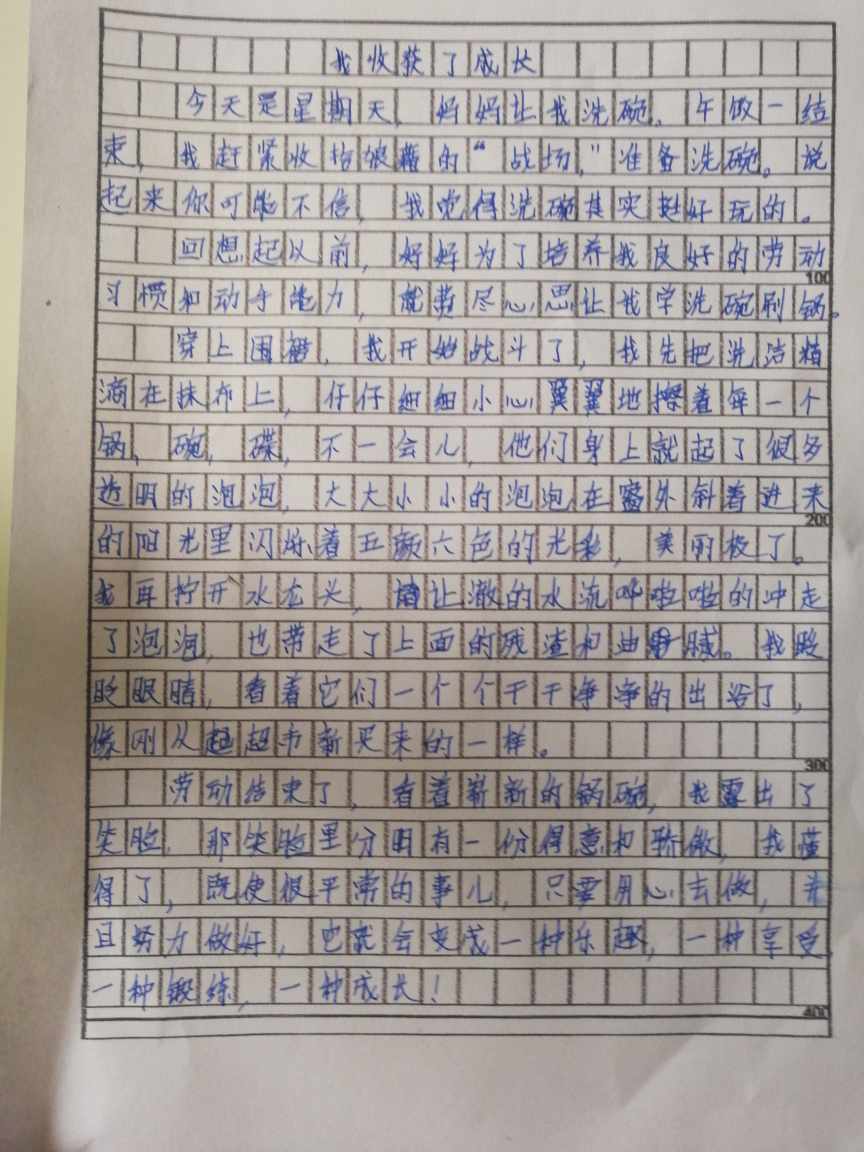 我收获了成长
今天是星期天，妈妈让我洗碗。午饭一结
束，我赶紧收拾狼藉的“战场，”准备洗碗。说
起来你可能不信，我觉得洗碗其实挺好玩的。
回想起以前，妈妈为了培养我良好的劳动
100
习惯和动手能力，就费尽心思让我学洗碗刷锅。
穿上围裙，我开始战斗了，我先把洗洁精
滴在抹布上，仔仔细细小心翼翼地擦着每一个
锅、碗，碟，不一会儿，他们身上就起了很多
透明的泡泡，大大小小的泡泡在窗外斜着进来
200
的阳光里闪烁着五颜六色的光彩，美丽极了。
我再拧开水龙头，让澈的水流哗啦啦的冲走
了泡泡，也带走了上面的残渣和油腻。我眨
眨眼睛，看着它们一个个干干净净的出浴了，
像刚从超市新买来的一样。
300
劳动结束了，看着崭新的锅碗，我露出了
笑脸，那笑脸里分明有一份得意和骄傲，我懂
得了，既使很平常的事儿，只要用心去做，并
且努力做好，它就会变成一种乐趣，一种享受
一种锻练，一种成长！
400